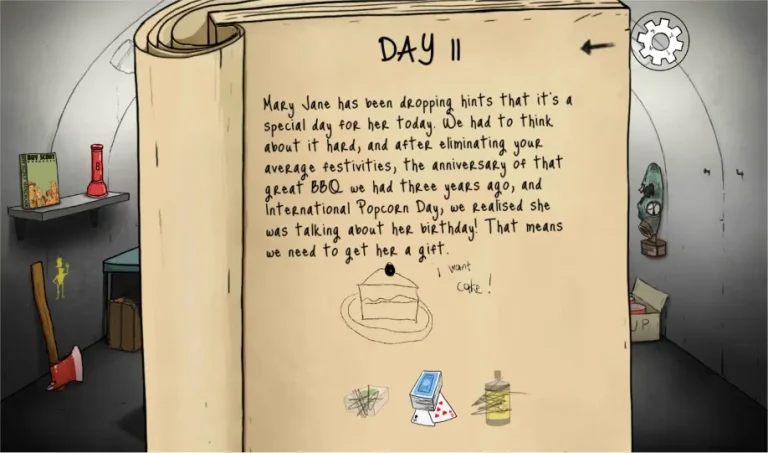 DAY 11
Mary Jane has been dropping hints that it's a
special day for her today. We had to think
about it hard, and after eliminating your
average festivities, the anniversary of that
great BBQ we had three years ago, and
International Popcorn Day, we realised she
was talking about her birthday! That means
we need to get her a gift.
I want
cake!
BOY SCOUT
UP